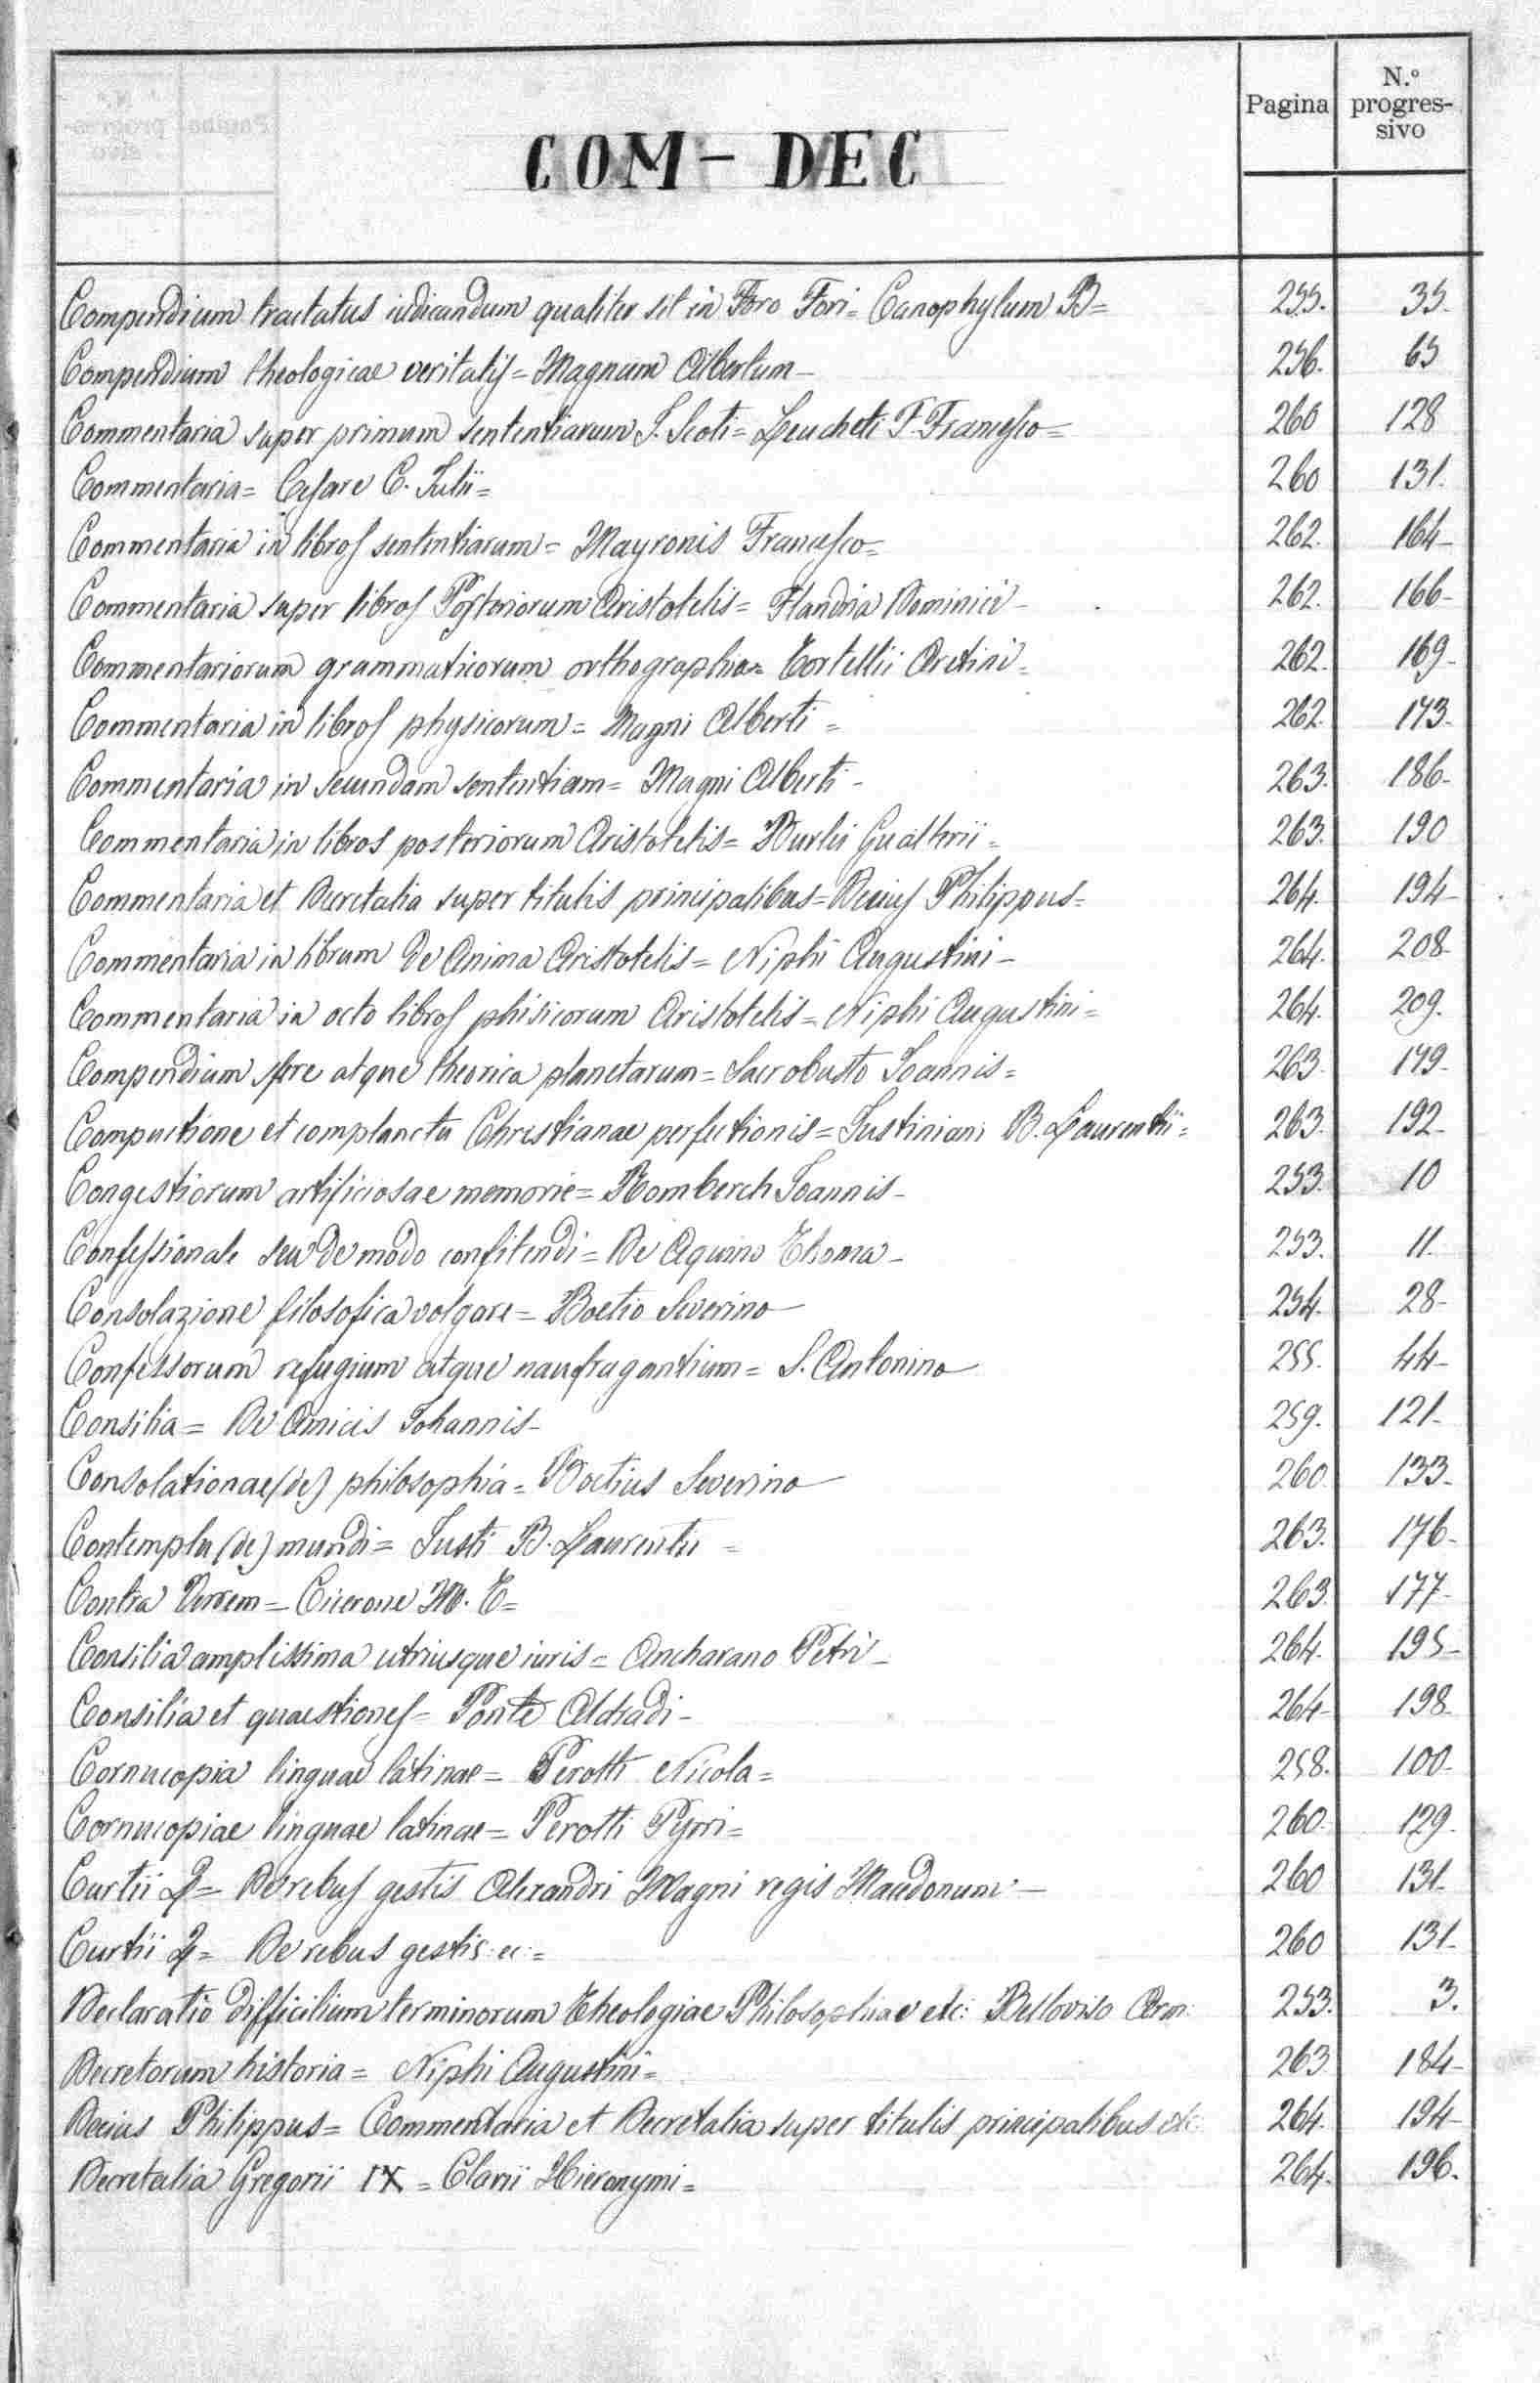 Pagina
N.º progressivo
COM - DEC
Compendium tractatus iudicandum qualiter sit in Foro Fori = Canophylum B = 255. 35.
Compendium theologicae veritatis = Magnum Albertum - 256. 65
Commentaria super primum sententiarum S. Scoti = Leucheti F. Francesco = 260 128
Commentaria = Cesare C. Julii = 260 131.
Commentaria in libros sententiarum = Mayronis Francesco = 262. 164-
Commentaria super libros Posteriorum Aristotelis = Flandria Dominici - 262. 166-
Commentariorum grammaticorum orthographia = Tortellii Aretini = 262. 169-
Commentaria in libros physicorum = Magni Alberti = 262. 173-
Commentaria in secundam sententiam = Magni Alberti - 263. 186-
Commentaria in libros posteriorum Aristotelis = Burlei Gualterii = 263. 190
Commentaria et Decretalia super titulis principalibus = Decius Philippus = 264. 194-
Commentaria in librum De Anima Aristotelis = Niphi Augustini - 264. 208-
Commentaria in octo libros phisicorum Aristotelis = Niphi Augustini = 264. 209.
Compendium sfere atque theorica planetarum = Sacrobusto Joannis = 263. 179-
Compuctione et complanctu Christianae perfectionis = Justiniani B. Laurentii = 263. 192-
Congestiorum artificiosae memorie = Romberch Joannis - 253. 10
Confessionale seu De modo confitendi = De Aquino Thoma - 253. 11.
Consolazione filosofica volgare = Boetio Severino 254. 28-
Confessorum refugium atque naufragantium = S. Antonino 255. 44-
Consilia = De Amicis Johannis - 259. 121-
Consolationae (de) philosophia = Boetius Severino 260. 133-
Contemptu (de) mundi = Justi B. Laurentii = 263. 176-
Contra Verrem = Cicerone M. T = 263. 177-
Consilia amplissima utriusque iuris = Ancharano Petri - 264. 195-
Consilia et quaestiones = Ponte Oldradi - 264- 198-
Cornucopia linguae latinae = Perotti Nicola = 258. 100-
Cornucopiae linguae latinae = Perotti Pyrri = 260. 129-
Curtii Q = De rebus gestis Alexandri Magni regis Macedonum - 260 131-
Curtii Q = De rebus gestis: ec: = 260 131-
Declaratio difficilium terminorum Theologiae Philosophiae etc: Belloviso Arm: 253. 3.
Decretorum historia = Niphi Augustini = 263 184-
Decius Philippus = Commentaria et Decretalia super titulis principalibus etc: 264. 194-
Decretalia Gregorii IX = Clarii Hieronymi = 264. 196.